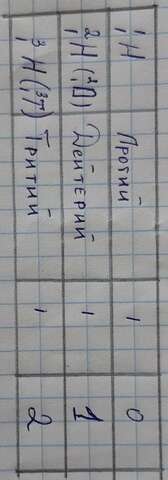 ¹₁H Протий 1 0
²₁H (²₁D) Дейтерий 1 1
³₁H (³₁T) Тритий 1 2